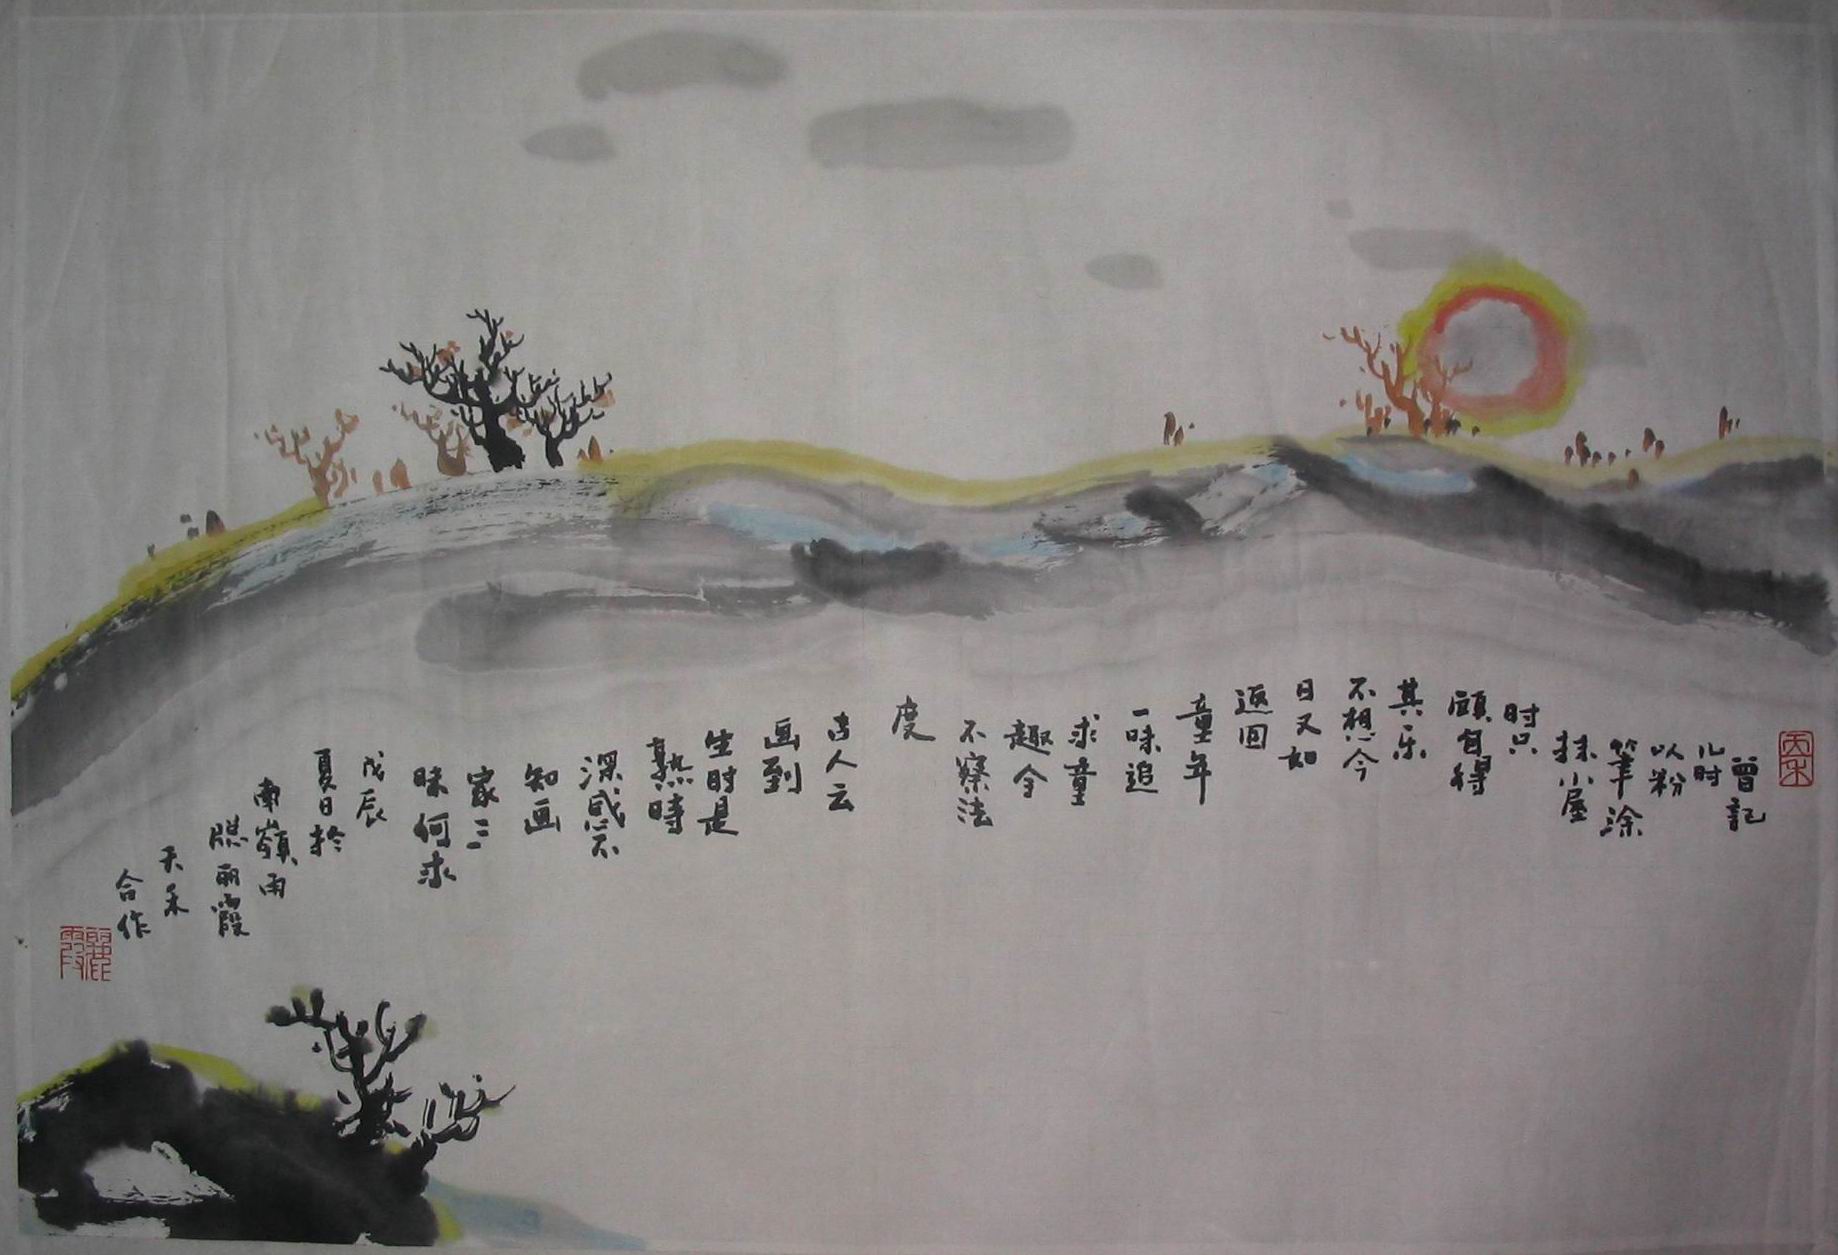 曾記
儿时
以粉
筆涂
抹小屋
时只
顾自得
其乐
不想今
日又如
返回
童年
一味追
求童
趣全
不察法
度
古人云
画到
生时是
熟時
深感不
知画
家三
昧何求
戊辰
夏日於
南嶺雨
丽霞
天禾
合作
天禾
麗霞